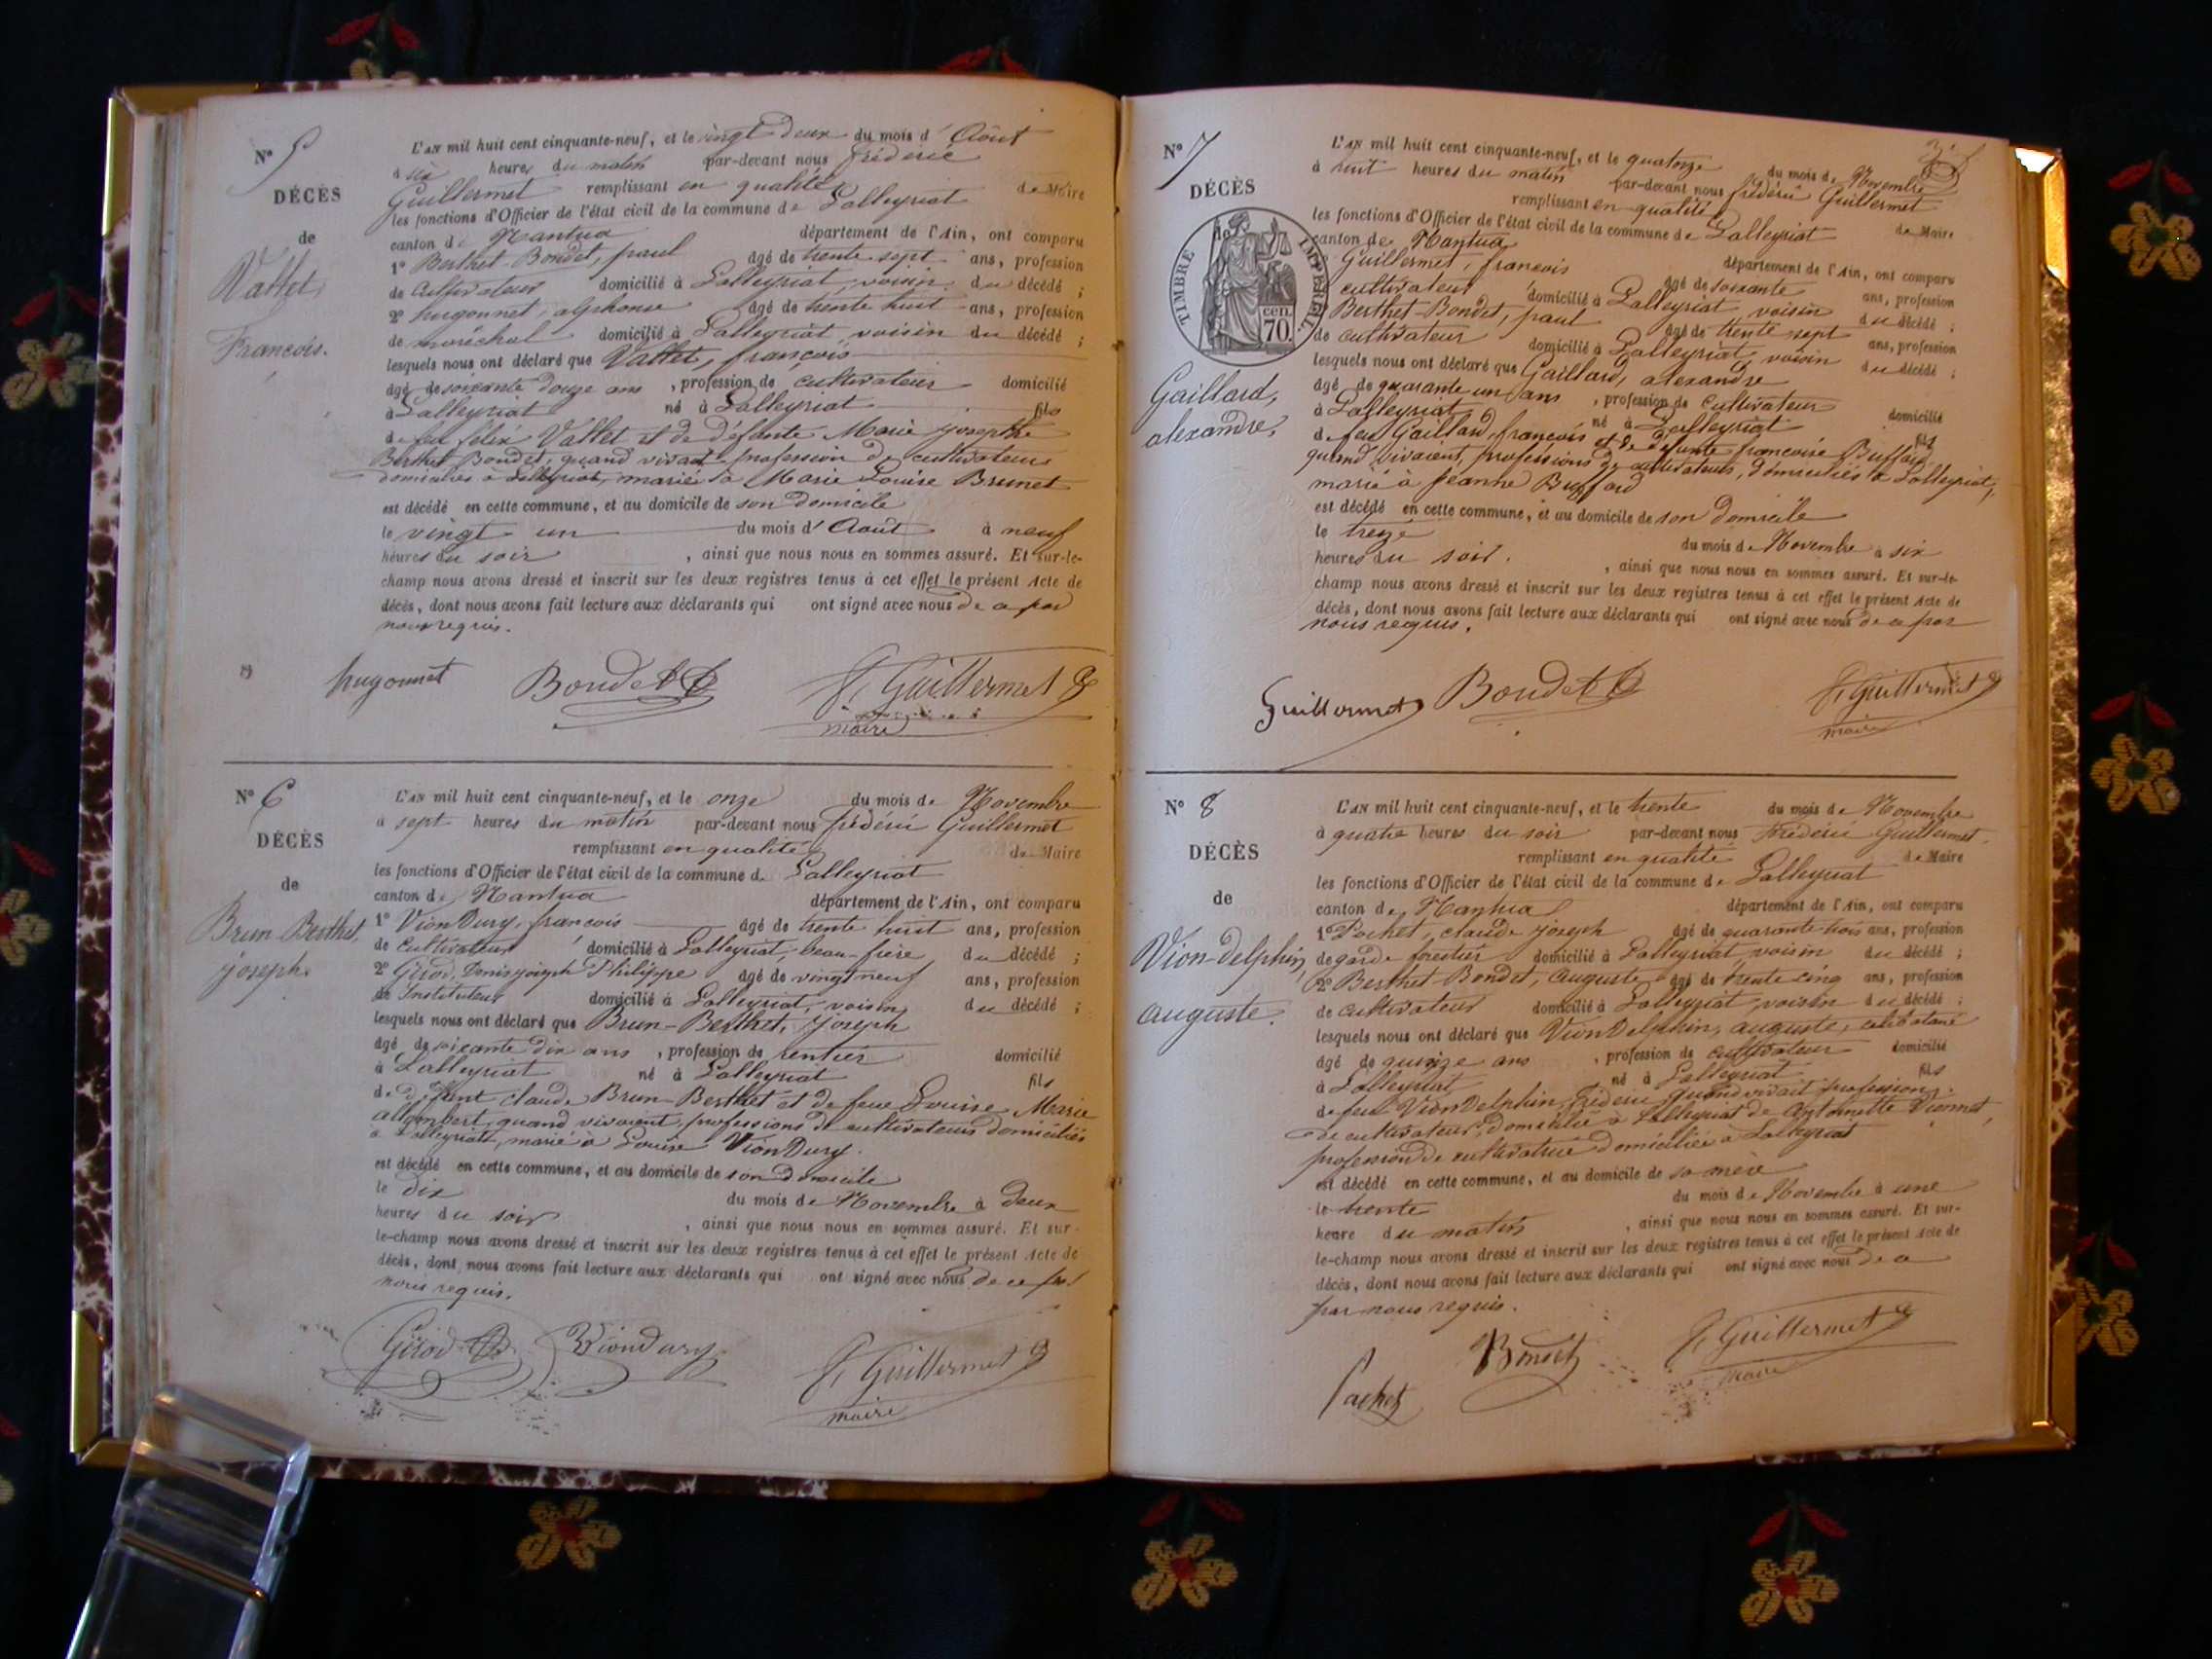 N° 5
DÉCÈS
de
Vallet,
François.
L'AN mil huit cent cinquante-neuf, et le vingt deux du mois d'Août
à six heures du matin par-devant nous frédéric
Guillermet remplissant en qualité de Maire
les fonctions d'Officier de l'état civil de la commune de Lalleyriat
canton de Nantua département de l'Ain, ont comparu
1° Berthet-Bondet, paul âgé de trente sept ans, profession
de cultivateur domicilié à Lalleyriat, voisin du décédé ;
2° hugonnet, alphonse âgé de trente huit ans, profession
de maréchal domicilié à Lalleyriat, voisin du décédé ;
lesquels nous ont déclaré que Vallet, françois
âgé de soixante douze ans, profession de cultivateur domicilié
à Lalleyriat né à Lalleyriat fils
de feu félix Vallet et de défunte Marie josephte
Berthet Bondet, quand vivait profession de cultivateurs
domiciliés à Lalleyriat, marié à Marie Louise Brunet
est décédé en cette commune, et au domicile de son domicile
le vingt un du mois d'Août à neuf
heures du soir, ainsi que nous nous en sommes assuré. Et sur-le-
champ nous avons dressé et inscrit sur les deux registres tenus à cet effet le présent Acte de
décès, dont nous avons fait lecture aux déclarants qui ont signé avec nous de ce par
nous requis.
hugonnet Bondet F. Guillermet
maire
N° 6
DÉCÈS
de
Brun-Berthet,
joseph.
L'AN mil huit cent cinquante-neuf, et le onze du mois de Novembre
à sept heures du matin par-devant nous frédéric Guillermet
remplissant en qualité de Maire
les fonctions d'Officier de l'état civil de la commune de Lalleyriat
canton de Nantua département de l'Ain, ont comparu
1° Vion Dury, françois âgé de trente huit ans, profession
de cultivateur domicilié à Lalleyriat, beau-frère du décédé ;
2° Girod, Denis joseph Philippe âgé de vingt neuf ans, profession
de Instituteur domicilié à Lalleyriat, voisin du décédé ;
lesquels nous ont déclaré que Brun-Berthet, joseph
âgé de soixante dix ans, profession de rentier domicilié
à Lalleyriat né à Lalleyriat fils
de défunt claude Brun-Berthet et de feue Louise Marie
Allombert, quand vivaient, professions de cultivateurs domiciliés
à Lalleyriat, marié à Louise Vion Dury.
est décédé en cette commune, et au domicile de son domicile
le dix du mois de Novembre à deux
heures du soir, ainsi que nous nous en sommes assuré. Et sur-
le-champ nous avons dressé et inscrit sur les deux registres tenus à cet effet le présent Acte de
décès, dont nous avons fait lecture aux déclarants qui ont signé avec nous de ce par
nous requis.
Girod Viondury F. Guillermet
maire
N° 7
DÉCÈS
de
TIMBRE IMPÉRIAL
cen.
70.
Gaillard,
alexandre.
L'AN mil huit cent cinquante-neuf, et le quatorze du mois de Novembre
à huit heures du matin par-devant nous frédéric Guillermet
remplissant en qualité de Maire
les fonctions d'Officier de l'état civil de la commune de Lalleyriat
canton de Nantua département de l'Ain, ont comparu
Guillermet, françois âgé de soixante ans, profession
cultivateur domicilié à Lalleyriat, voisin du décédé ;
Berthet-Bondet, paul âgé de trente sept ans, profession
de cultivateur domicilié à Lalleyriat, voisin du décédé ;
lesquels nous ont déclaré que Gaillard, alexandre
âgé de quarante un ans, profession de cultivateur domicilié
à Lalleyriat né à Lalleyriat fils
de feu Gaillard, françois et de défunte françoise Buffard
quand vivaient, professions de cultivateurs, domiciliés à Lalleyriat,
marié à Jeanne Buffard
est décédé en cette commune, et au domicile de son domicile
le treize du mois de Novembre à six
heures du soir, ainsi que nous nous en sommes assuré. Et sur-le-
champ nous avons dressé et inscrit sur les deux registres tenus à cet effet le présent Acte de
décès, dont nous avons fait lecture aux déclarants qui ont signé avec nous de ce par
nous requis.
Guillermet Bondet F. Guillermet
maire
N° 8
DÉCÈS
de
Vion-delphin,
auguste.
L'AN mil huit cent cinquante-neuf, et le trente du mois de Novembre
à quatre heures du soir par-devant nous frédéric Guillermet
remplissant en qualité de Maire
les fonctions d'Officier de l'état civil de la commune de Lalleyriat
canton de Nantua département de l'Ain, ont comparu
1° Pochet, claude joseph âgé de quarante trois ans, profession
de garde forestier domicilié à Lalleyriat voisin du décédé ;
2° Berthet-Bondet, auguste âgé de trente cinq ans, profession
de cultivateur domicilié à Lalleyriat, voisin du décédé ;
lesquels nous ont déclaré que Vion Delphin, auguste, célibataire
âgé de quinze ans, profession de cultivateur domicilié
à Lalleyriat né à Lalleyriat fils
de feu Vion Delphin, frédéric, quand vivait profession
de cultivateur, domicilié à Lalleyriat de Antoinette Viennet,
profession de cultivatrice domiciliée à Lalleyriat
est décédé en cette commune, et au domicile de sa mère
le trente du mois de Novembre à une
heure du matin, ainsi que nous nous en sommes assuré. Et sur-
le-champ nous avons dressé et inscrit sur les deux registres tenus à cet effet le présent Acte de
décès, dont nous avons fait lecture aux déclarants qui ont signé avec nous de ce
par nous requis.
Pochet Bondet F. Guillermet
maire